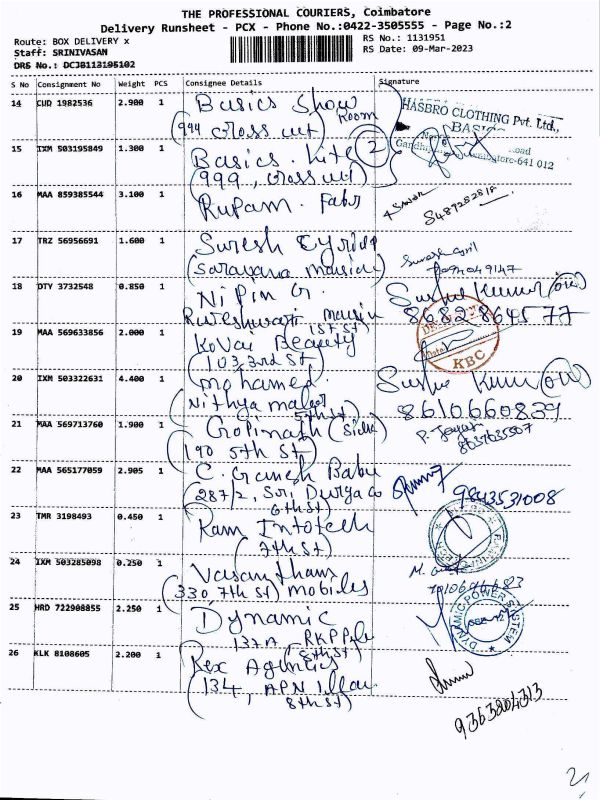 THE PROFESSIONAL COURIERS, Coimbatore
Delivery Runsheet - PCX - Phone No.:0422-3505555 - Page No.:2
Route: BOX DELIVERY x
RS No.: 1131951
Staff: SRINIVASAN
RS Date: 09-Mar-2023
DRS No.: DCJB113195102
S No Consignment No Weight PCS Consignee Details Signature
14 CUD 1982536 2.900 1 Basics Show Room
(999 cross cut)
HASBRO CLOTHING Pvt. Ltd.,
BASICS
15 IXM 503195849 1.300 1 Basics. Life 2
(999, cross cut)
641 012
16 MAA 859385544 3.100 1 Rupam. Fabr
8489282818
17 TRZ 56956691 1.600 1 Suresh Cyril
(Saravana mansion)
18 DTY 3732548 0.850 1 Nipin G.
Rureshwari mansion
(1st St)
8682864577
19 MAA 569633856 2.000 1 Kovai Beauty
(103, 3rd St)
Date
KBC
20 IXM 503322631 4.400 1 Mohamed.
(Nithya
5th St)
8610660839
21 MAA 569713760 1.900 1 Gopinath
(190 5th St)
22 MAA 565177059 2.905 1 C. Ganesh Babu
(287/2, Sri, Durga
6th St)
9843531008
23 TMR 3198493 0.450 1 Ram Infotech
(7th St)
24 IXM 503285098 0.250 1 Vasantham
(330 7th St) mobiles
25 HRD 722908855 2.250 1 Dynamic
137A, RKP
(8th St)
DYNAMIC POWER SYSTEM
26 KLK 8108605 2.200 1 Rex Agencies
(134, APN Illam
8th St)
9363804313